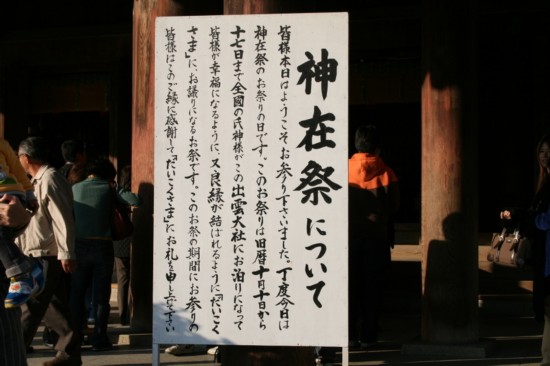 神在祭について
皆様本日はようこそお参り下さいました。丁度今日は
神在祭のお祭りの日です。このお祭りは旧暦十月十日から
十七日まで全國の氏神様がこの出雲大社にお泊りになって
皆様が幸福になるように、又良縁が結ばれるように「だいこく
さま」に、お譲りになるお祭です。このお祭の期間にお参りの
皆様はこのご縁に感謝して「だいこくさま」にお礼を申し上て下さい